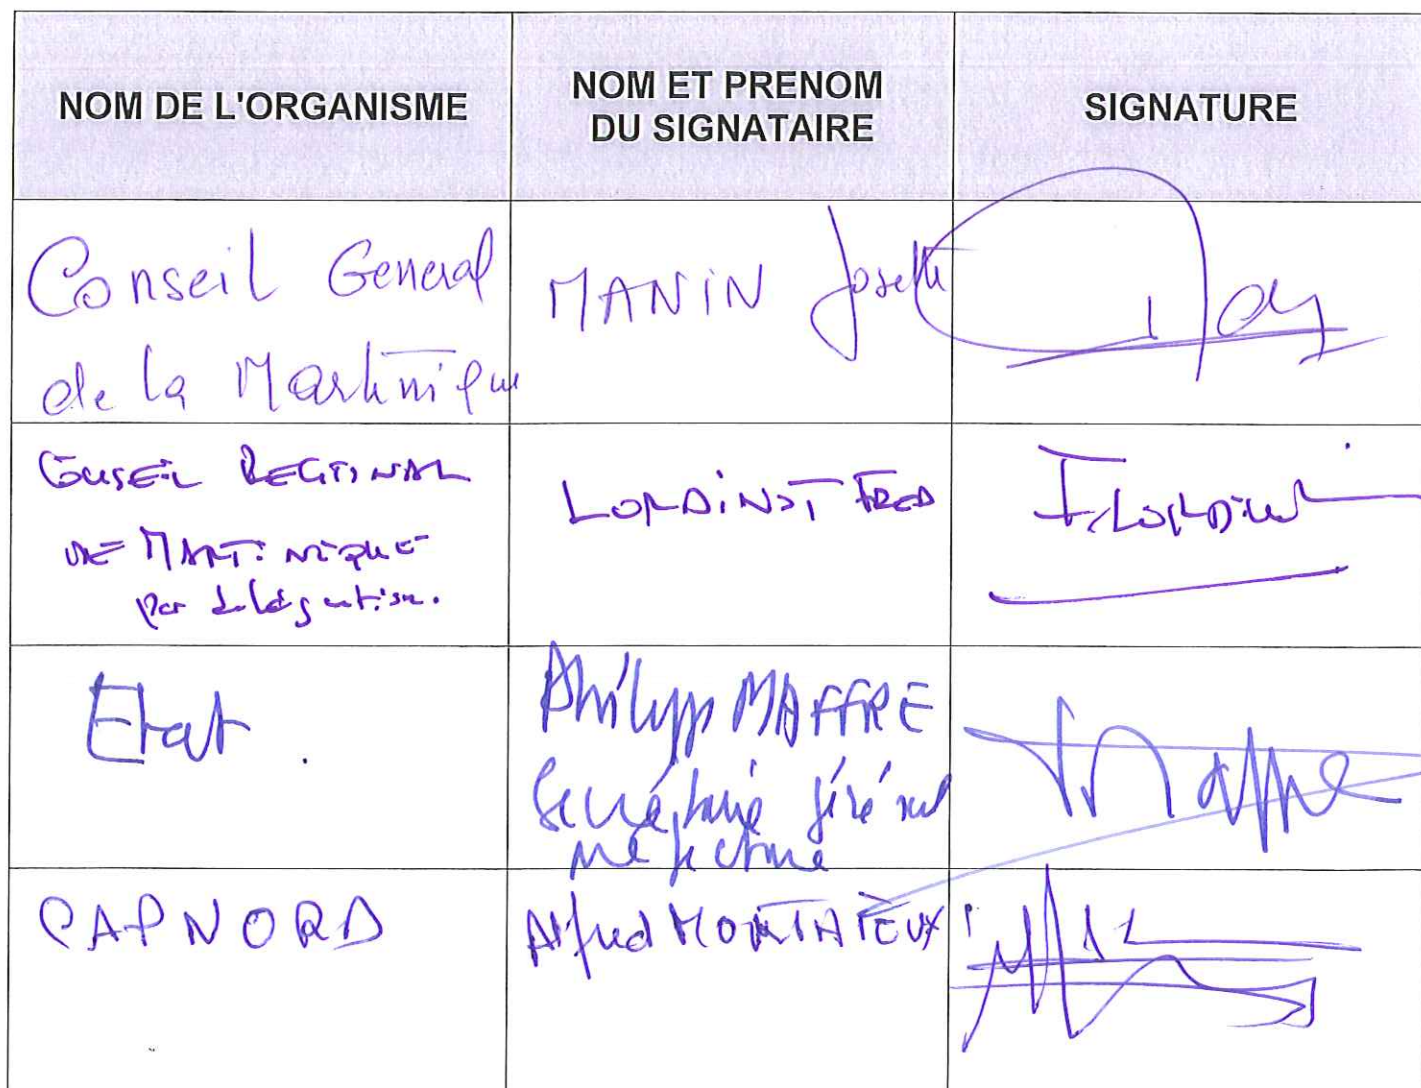 NOM DE L'ORGANISME
NOM ET PRENOM
DU SIGNATAIRE
SIGNATURE
Conseil General
de la Martinique
MANIN Joselle
CONSEIL REGIONAL
DE MARTINIQUE
par délégation.
LORDINOT FRED
F. LORDINOT
Etat.
Philipp MAFFRE
Secrétaire général
préfecture
Maffre
CAP NORD
Alfred MONTHIEUX